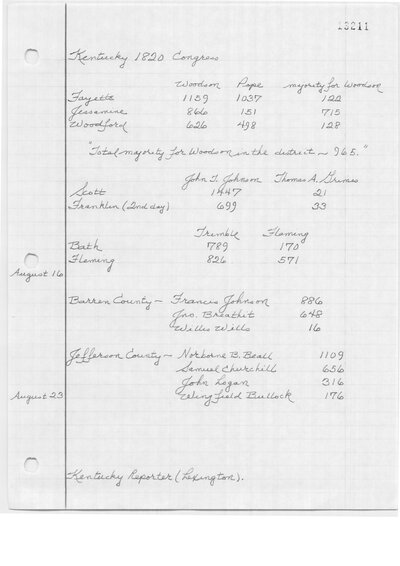 13211
Kentucky 1820 Congress
Woodson Pope majority for Woodson
Fayette 1159 1037 122
Jessamine 866 151 715
Woodford 626 498 128
"Total majority for Woodson in the district - 965."
John T. Johnson Thomas A. Grimes
Scott 1447 21
Franklin (2nd day) 699 33
Trimble Fleming
Bath 789 170
Fleming 826 571
August 16
Barren County - Francis Johnson 886
Jno. Breathit 648
Willis Wills 16
Jefferson County - Norborne B. Beall 1109
Samuel Churchill 656
John Logan 316
August 23 Wingfield Bullock 176
Kentucky Reporter (Lexington).